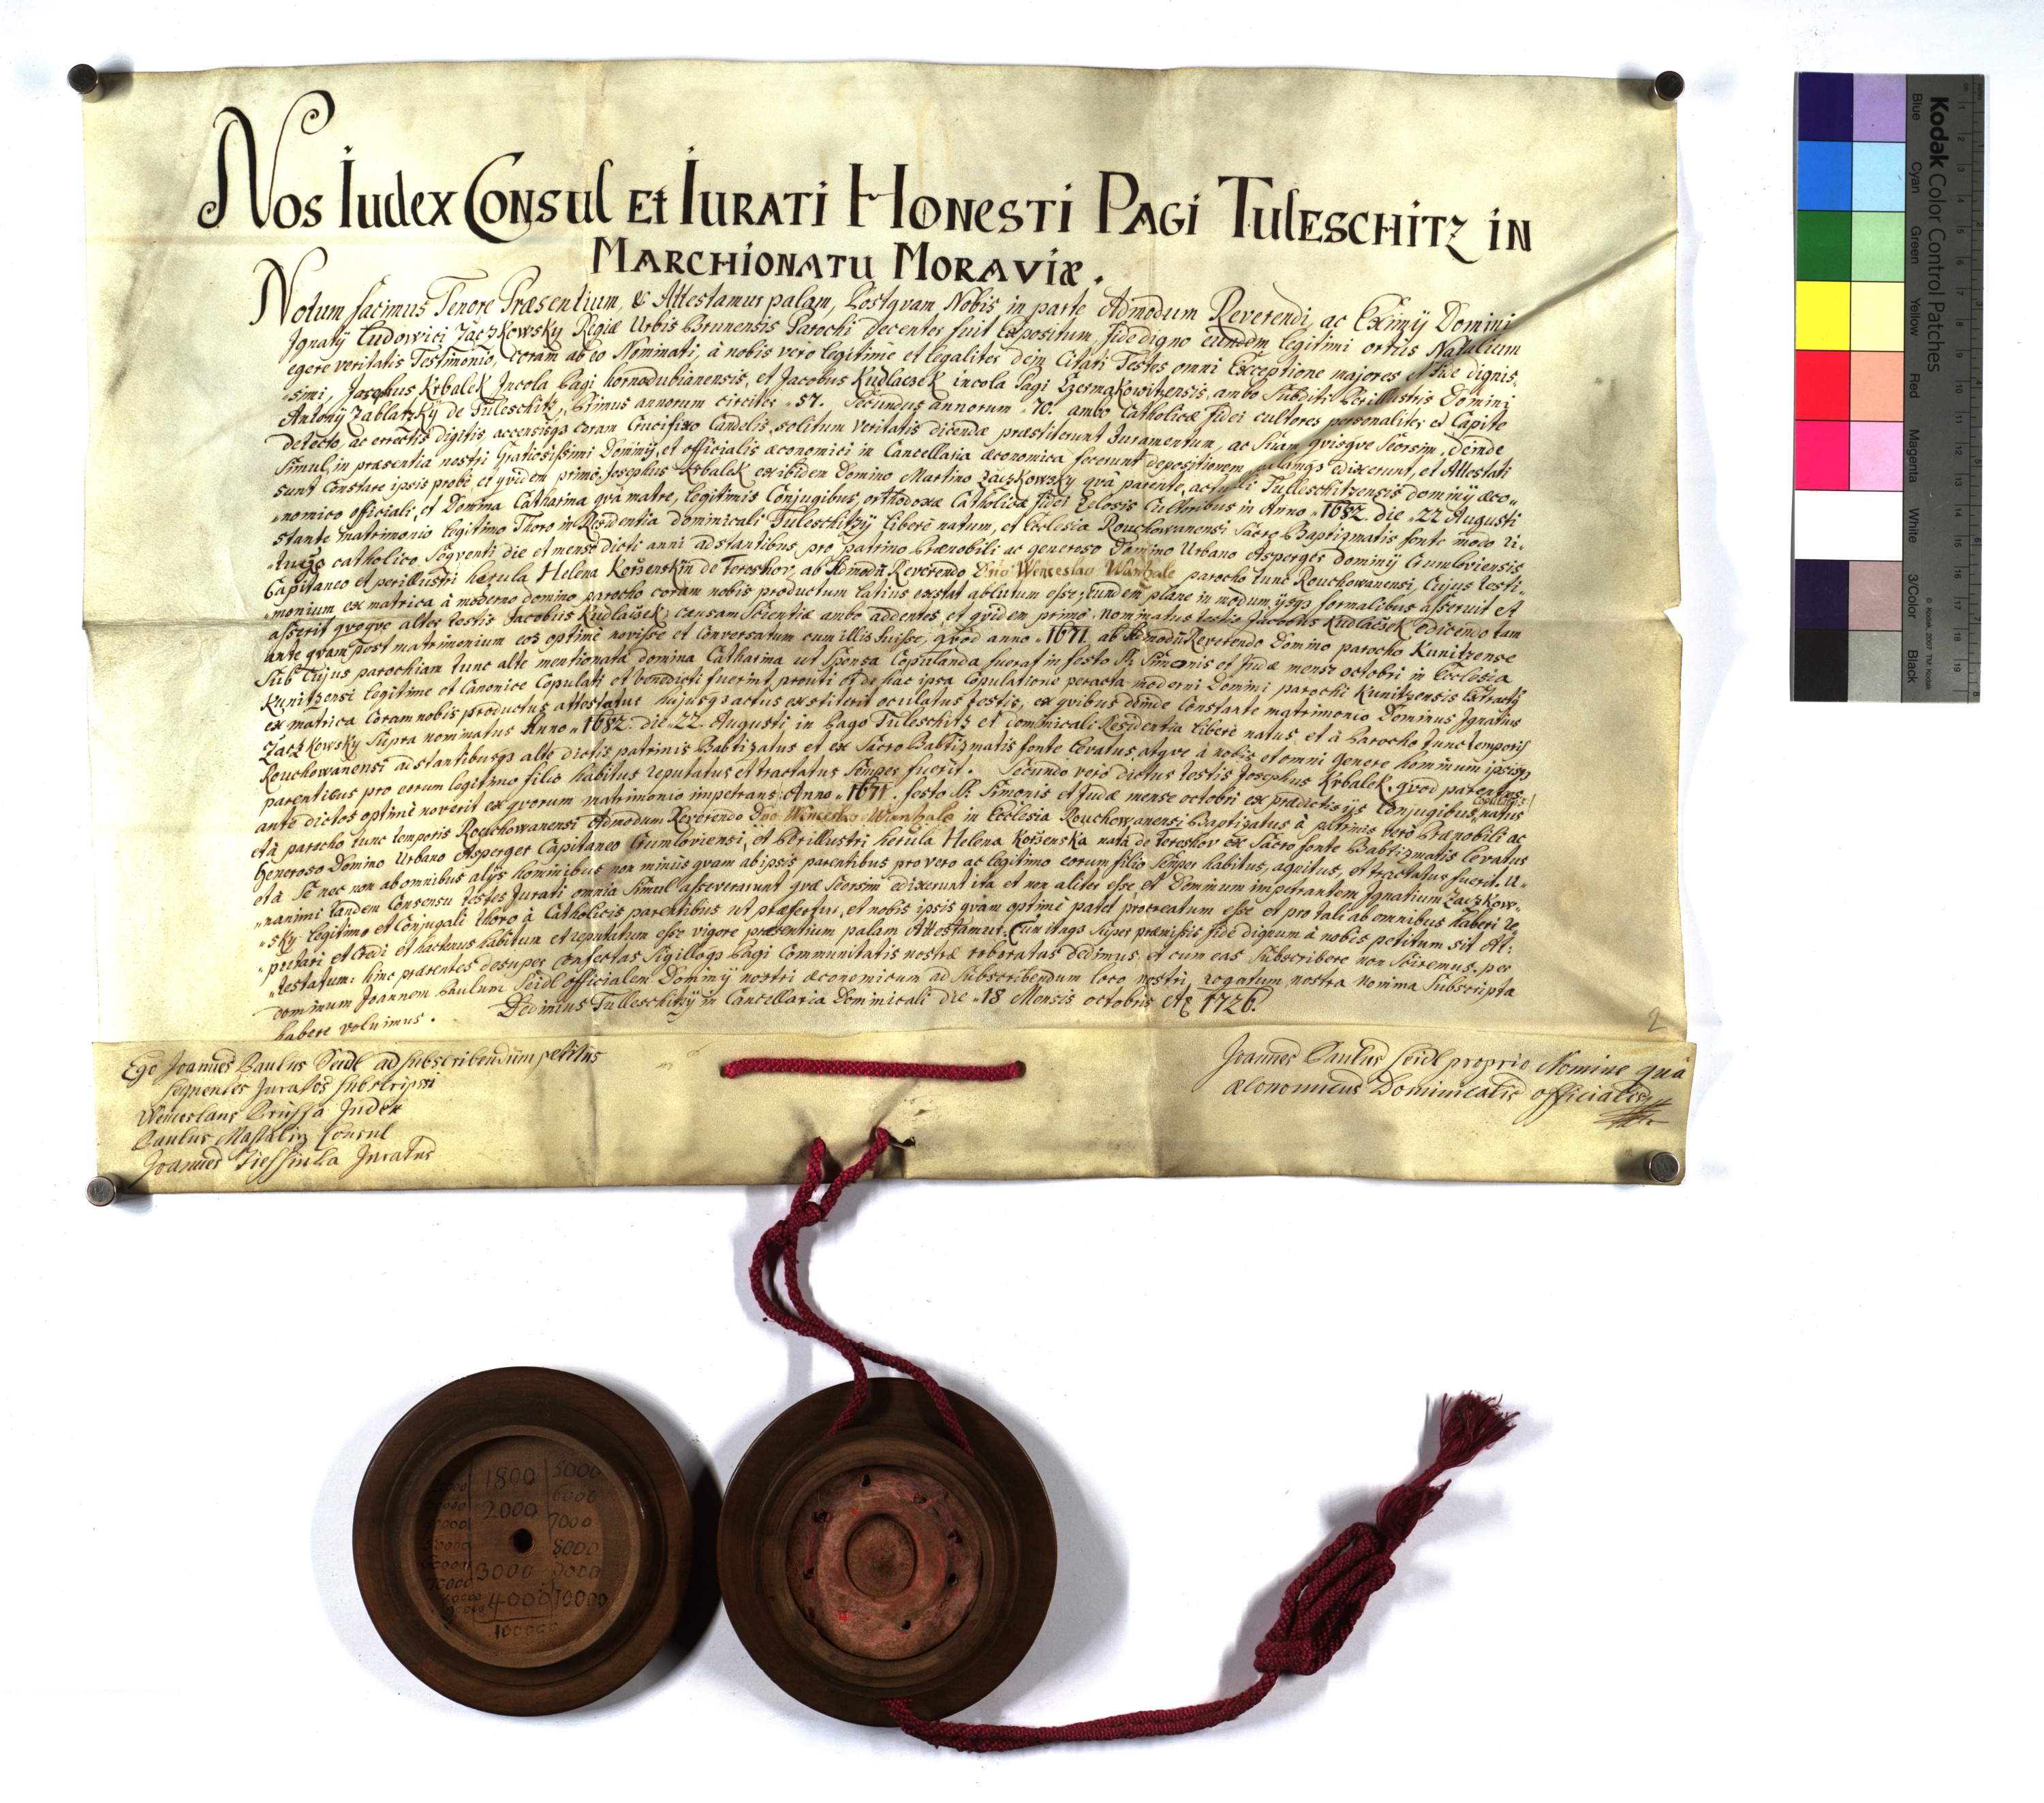 Nos Iudex Consul Et Iurati Honesti Pagi Tuleschitz in
Marchionatu Moraviæ.
Notum facimus Tenore Præsentium, & Attestamur palam, Postqvam Nobis in parte Admodum Reverendi, ac Eximij Domini
Ignatij Ludowici Zaczkowsky Regiæ Urbis Brunensis Parochi decenter fuit Expositum, fide digno eundem legitimi ortûs Natalium
egere veritatis Testimonio, coram ab eo Nominati, à nobis vero legitime et legaliter dein Citati Testes omni Exceptione majores et fide dignis,,
,,simi, Josephus Krbalek Incola Pagi hornodubianensis, et Jacobus Kudlaczek incola Pagi Czermakowitzensis, ambo Subditi Perillustris Domini
Antonij Zablatzky de Tuleschitz, Primus annorum circiter ,,57. Secundus annorum ,,70. ambo Catholicæ fidei cultores personaliter et Capite
detecto, ac errectis digitis, accensisqs coram Crucifixo Candelis, solitum veritatis dicendæ præstiterunt Iuramentum, ac Suam qvisqve Seorsim, deinde
Simul in præsentia nostri Gratiosissimi Dominij, et officialis œconomici in Cancellaria œconomica fecerunt depositionem, edixerunt, et Attestati
sunt Constare ipsis probe, et qvidem primo Josephus Krbalek ex ibidem Domino Martino Zaczkowsky qvà parente, actuali Tulleschitzensis dominij œco,,
,,nomico officiali, et Domina Catharina qvà matre, legitimis Conjugibus, orthodoxæ Catholicæ fidei Zelosis Cultoribus in Anno ,,1682. die ,,22 Augusti
stante matrimonio legitimo Thoro in Residentia dominicali Tuleschitzij liberè natum, et Ecclesia Rouchowanensi Sacro Baptizmatis fonte modo ri,,
,,tuqs catholico Seqventi die et mense dicti anni adstantibus pro patrino Prænobili ac generoso Domino Urbano Asperger dominij Crumloviensis
Capitaneo et perillustri herula Helena Korženskin de Tereshov, ab Admodũ Reverendo Dño Wenceslao Wanhale parocho tunc Rouchowanensi, Cujus testi,,
,,monium ex matrica à moderno domino parocho coram nobis productum latius exstat ablutum esse, eundem plane in modum, ijsqs formalibus asseruit et
asserit qvoqve alter testis Jacobus Kudlaczek, causam Scientiæ ambo addentes, et qvidem primò nominatus testis Jacobus Kudlaczek edicendo tam
ante qvam post matrimonium eos optimè novisse et Conversatum cum illis fuisse, qvod anno ,,1671. ab Admodũ Reverendo Domino parocho Kunitzense
sub Cujus parochiam tunc alte mentionata domina Catharina ut Sponsa Copulanda fuerat in festo SS. Simonis et Judæ mense octobri in Ecclesia
Kunitzensi legitime et Canonice Copulati et benedicti fuerint, prouti et de hac ipsa Copulatione peracta moderni Domini parochi Kunitzensis Extractus
ex matrica Coram nobis productus attestatur hujusqs actus exstiterit oculatus testis, ex qvibus deinde Constante matrimonio Dominus Ignatius
Zaczkowsky Supra nominatus Anno ,,1682. die ,,22. Augusti, in Pago Tuleschitz et dominicali Residentia liberè natus, et à Parocho tunc temporis
Rouchowanensi adstantibusqs alte dictis patrinis Babtizatus et ex Sacro Babtizmatis fonte levatus, atqve à nobis et omni genere hominum ipsisqs
parentibus pro eorum legitimo filio habitus reputatus et tractatus Semper fuerit. Secundo verò dictus testis Josephus Krbalek, qvod parentes
ante dictos optimè noverit ex qvorum matrimonio impetrans Anno ,,1671. festo SS. Simonis et Judæ mense octobri ex prædictis ijs Conjugibus, natus
Copulatis
et à parocho tunc temporis Rouchowanensi Admodum Reverendo Dño Wenceslao Wanhale in Ecclesia Rouchowanensi Baptizatus à patrinis verò Prænobili ac
Generoso Domino Urbano Asperger Capitaneo Crumloviensi, et Perillustri herula Helena Korženska nata de Tereshov ex Sacro fonte Babtizmatis levatus
et à Se nec non ab omnibus alijs hominibus non minùs qvam ab ipsis parentibus pro vero ac legitimo eorum filio Semper habitus, agnitus, et tractatus fuerit. U,,
,,nanimi tandem Consensu testes Jurati omnia Simul asseverarunt qvæ Seorsim edixerunt ita et non aliter esse, et Dominum impetrantem Ignatium Zaczkow,,
,,sky legitimo et Conjugali thoro à Catholicis parentibus ut præfertur, et nobis ipsis qvàm optimè patet procreatum esse et pro tali ab omnibus haberi re,,
,,putari et Credi et hactenus habitum et reputatum esse vigore præsentium palam Attestamur. Cum itaqs Super præmissis fide dignum à nobis petitum sit At,,
,,testatum: hinc præsentes desuper Confectas Sigilloqs Pagi Communitatis nostræ roboratas dedimus, et cum eas Subscribere non Sciremus, per
dominum Joannem Paulum Seidl officialem Dominij nostri œconomicum ad Subscribendum loco nostri, rogatum nostra nomina Subscripta
habere voluimus. Dedimus Tulleschitzij in Cancellaria Dominicali die ,,18 Mensis octobris A: 1726.
2
Ego Joannes Paulus Seidl ad subscribendum petitus
sequentes Juratos subscripsi
Wenceslaus Prussa Judex
Paulus Mastalirz Consul
Joannes Jiessinka Juratus
Joannes Paulus Seidl proprio Nomine quà
œconomicus Dominicalis officialis
1800
2000
3000
4000
5000
6000
7000
8000
9000
10000
100000
Kodak Color Control Patches
Blue Cyan Green Yellow Red Magenta White 3/Color Black
© Kodak, 2007 TM: Kodak
1 2 3 4 5 6 7 8 9 10 11 12 13 14 15 16 17 18 19